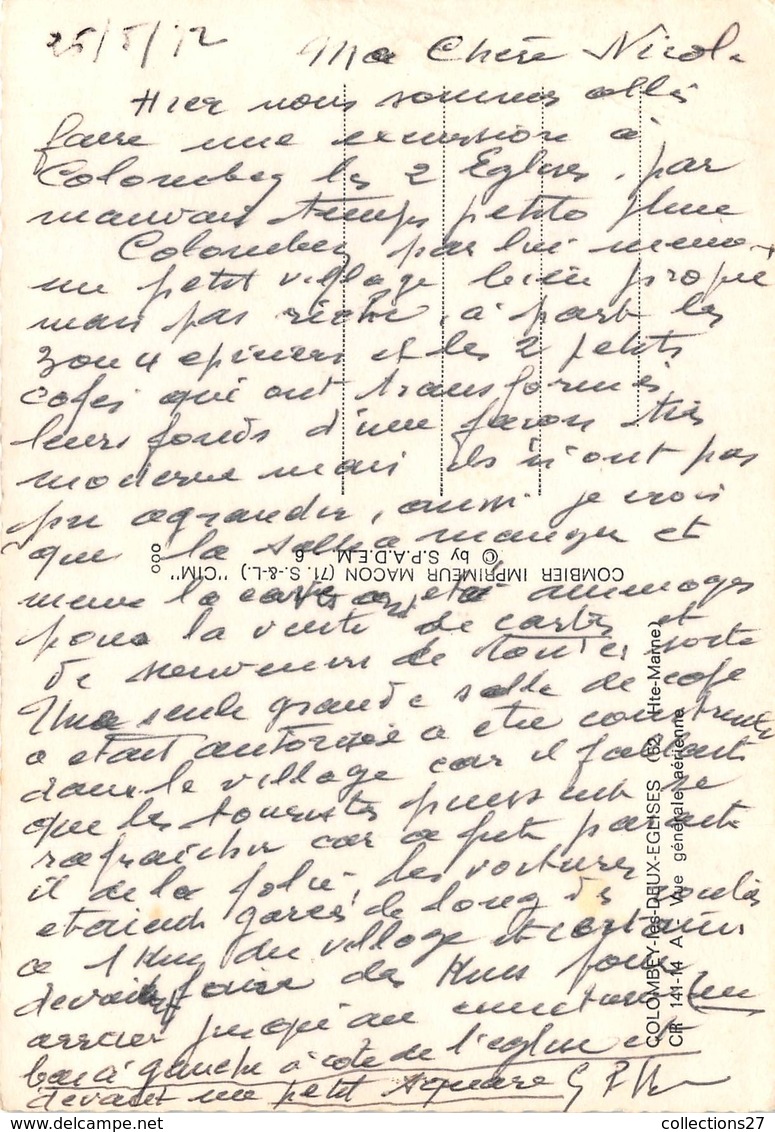 25/5/72 Ma Chère Nicole
Hier nous sommes allés
faire une excursion à
Colombey les 2 Eglises, par
mauvais temps petite pluie
Colombey par lui meme
un petit village bien propre
mais pas riche, à part les
3 ou 4 epiciers et les 2 petits
cafés qui ont transformés
leurs fonds d'une facon très
moderne mais ils n'ont pas
pu agrandir, aussi je crois
que la salle a manger et
meme la cave a été amenagés
pour la vente de cartes et
de souvenirs de toutes sorte
Une seule grande salle de cafe
a etait autorisée a etre construite
dans le village car il fallait
que les touristes puissent se
rafraichir car a fete parait
il de la folie, des voitures
etaient garés de long des
a 1 Km du village et certains
devait faire des Kms pour
arriver jusqu'au cimetiere
bas à gauche à cote de l'eglise et
devant un petit square
COMBIER IMPRIMEUR MACON (71. S.-&-L.) "CIM"
© by S.P.A.D.E.M. 6
COLOMBEY-les-DEUX-EGLISES (52. Hte-Marne)
CIR 141-14 A - Vue générale aérienne
collections27